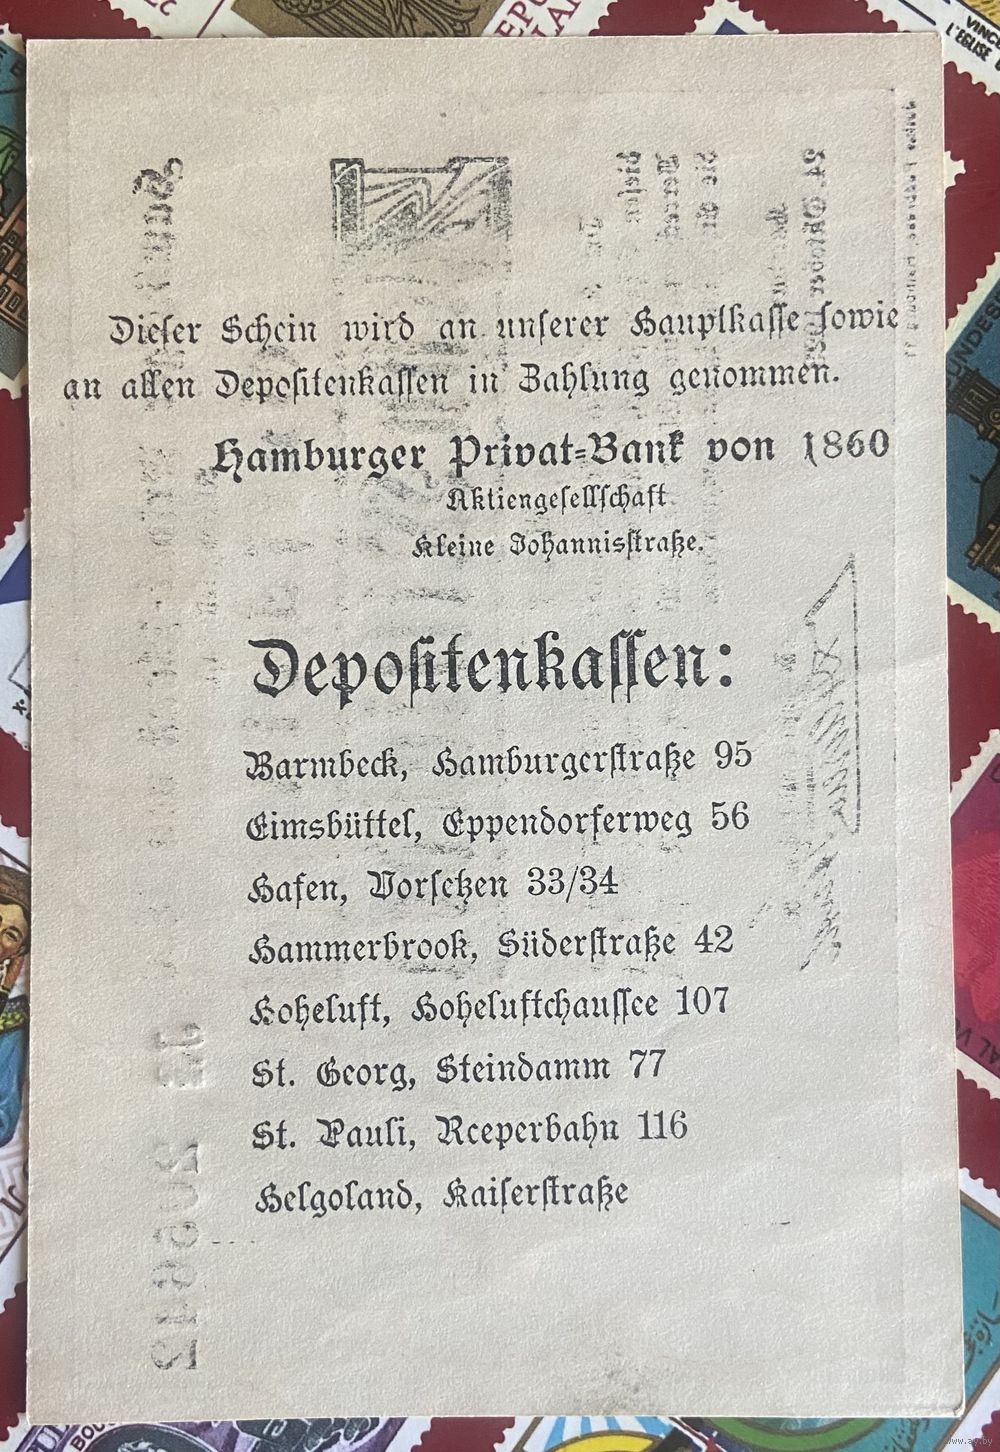 Dieser Schein wird an unserer Hauptkasse sowie
an allen Depositenkassen in Zahlung genommen.
Hamburger Privat-Bank von 1860
Aktiengesellschaft
Kleine Johannisstraße.
Depositenkassen:
Barmbeck, Hamburgerstraße 95
Eimsbüttel, Eppendorferweg 56
Hafen, Vorsetzen 33/34
Hammerbrook, Süderstraße 42
Hoheluft, Hoheluftchaussee 107
St. Georg, Steindamm 77
St. Pauli, Reeperbahn 116
Helgoland, Kaiserstraße
www.ay.by